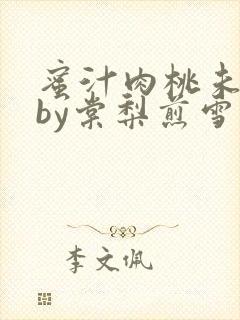 蜜汁肉桃未
by棠梨煎雪
李文佩